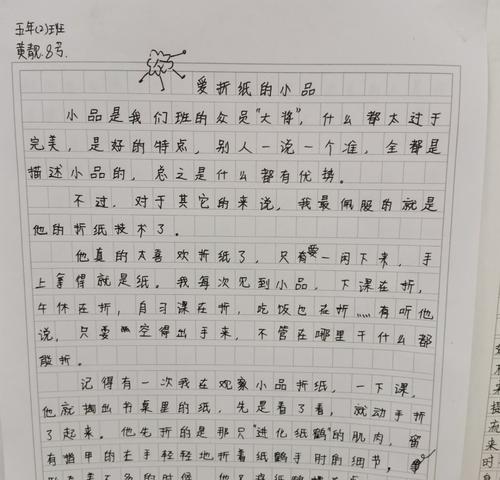 五年(2)班
黄靓.8号.
爱折纸的小品
小品是我们班的众员"大将",什么都太过于
完美,是好的特点,别人一说一个准,全都是
描述小品的,总之是什么都有优势。
不过,对于其它的来说,我最佩服的就是
他的折纸技术了。
他真的太喜欢折纸了,只有爱一闲下来,手
上拿得就是纸。我每次见到小品,下课在折,
午休在折,自习课在折,吃饭也在折……有听他
说,只要空得出手来,不管在哪里干什么都
能折。
记得有一次我在观察小品折纸,一下课,
他就掏出书桌里的纸,先是看了看,就动手折
了起来。他先折的是那只"进化纸鹤"的肌肉,留
有指甲的左手轻轻地折着纸鹤手肘的细节,